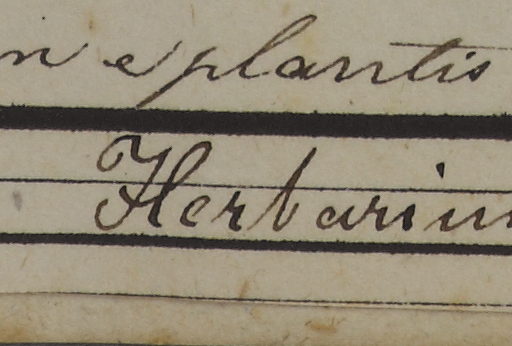 n e plantis
Herbarium